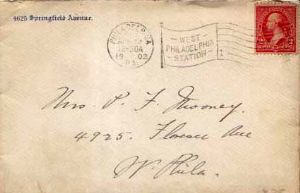 4625 Springfield Avenue.
PHILADELPHIA
12-30A
1902
PA.
WEST
PHILADELPHIA
STATION
Mrs P. F. Mooney
4925. Florence Ave
W. Phila.